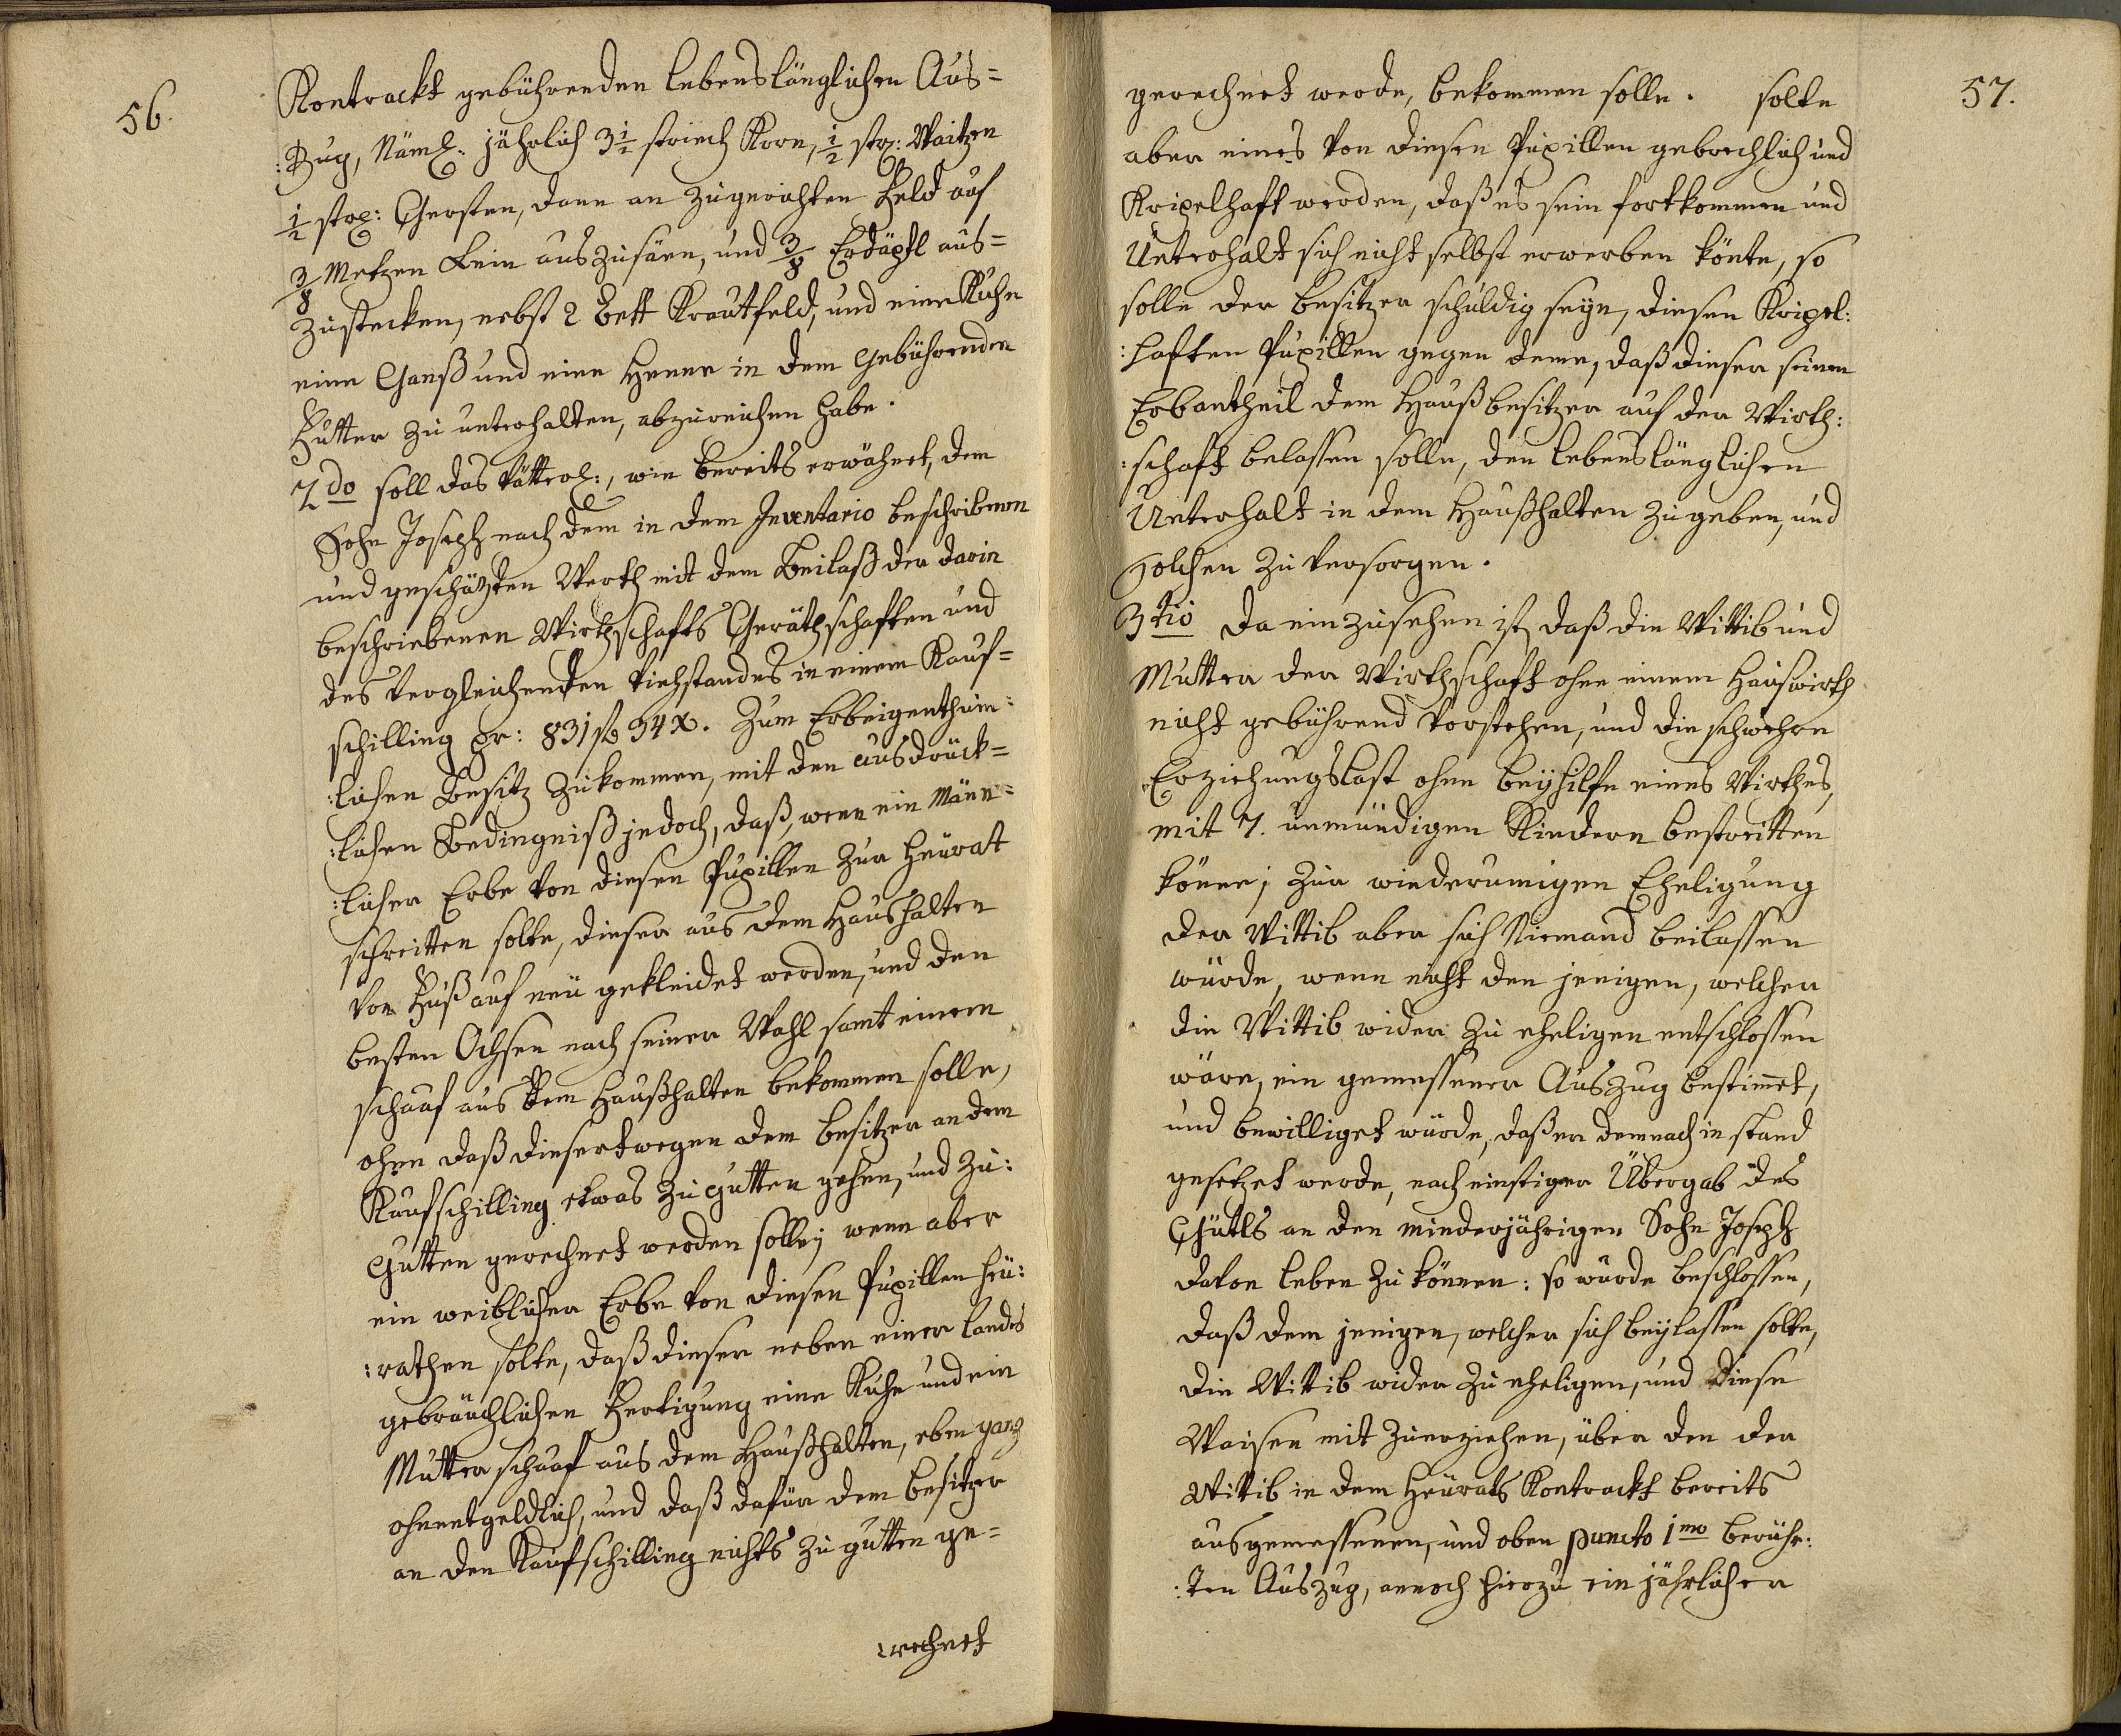 56.
Kontrackt gebührenden lebenslänglichen Aus=
:Zug, Näml: jährlich 3 1/2 striech Korn, 1/2 str: Waitzen
1/2 str: Gersten, dann an zugerichten Feld auf
3/8 Metzen Lein auszusäen, und 3/8 Erdäpfl aus=
zustecken, nebst 2 Bett Krautfeld, und eine Kuhe
eine Ganß und eine Henne in dem Gebührenden
Futter zu unterhalten, abzureichen habe.
2do soll das Vätterl:, wie bereits erwähnet, dem
Sohn Joseph nach dem in dem Inventario beschribenen
und geschätzten Werth mit dem Beilaß der darin
beschriebenen Wirthschafts Geräthschaften und
des vergleichenden Viehstandes in einem Kauf=
schilling pr: 831 f 34 x. Zum Erbeigenthüm:
:lichen Besitz zukommen, mit den ausdrück=
:lichen Bedingniß jedoch, daß, wenn ein Män=
:licher Erbe von diesen Pupillen zur Heurat
schreitten solte, dieser aus dem Haushalten
von Fuß auf neü gekleidet werden, und den
besten Ochsen nach seiner Wahl samt einem
schaaf aus dem Haußhalten bekommen solle,
ohne daß diesertwegen dem Besitzer an dem
Kaufschilling etwas zu gutten gehen, und zu:
gutten gerechnet werden solle; wenn aber
ein weiblicher Erbe von diesen Pupillen heü:
:rathen solte, daß dieser neben einer landes
gebräuchlichen Fertigung eine Kuhe und ein
Mutter schaaf aus dem Haußhalten, eben ganz
ohnentgeldlich, und daß dafür dem Besitzer
an den Kaufschilling nichts zu gutten ge=
rechnet
57.
gerechnet werde, bekommen solle. solte
aber eines von diesen Pupillen gebrechlich und
Kripelhaft werden, daß es sein fortkommen und
Unterhalt sich nicht selbst erwerben könte, so
solle der Besitzer schuldig seyn, diesen Kripel:
:haften Pupillen gegen deme, daß dieser seinen
Erbantheil dem Haußbesitzer auf der Wirth:
:schaft belassen solle, den lebenslänglichen
Unterhalt in dem Haußhalten zugeben, und
solchen zu versorgen.
3tio Da einzusehen ist, daß die Wittib und
Mutter der Wirthschaft ohne einem Hauswirth
nicht gebührend vorstehen, und die schwehre
Erziehungslast ohne beyhilfe eines Wirthes,
mit 7. unmündigen Kindern bestreitten
könne; zur wiederumigen Eheligung
der Wittib aber sich Niemand beilassen
würde, wenn nicht den jenigen, welcher
die Wittib wider zu eheligen entschlossen
wäre, ein gemessener Auszug bestimet,
und bewilliget würde, daß er demnach in stand
gesetzet werde, nach einstiger Übergab des
Gütls an den minderjährigen Sohn Joseph
davon leben zu können: so wurde beschlossen,
daß dem jenigen, welcher sich beylassen solte,
die Wittib wider zu eheligen, und diese
Waisen mit zuerziehen, über den der
Wittib in dem Heürats Kontrackt bereits
ausgemessenen, und oben puncto 1mo berühr:
:ten Auszug, annoch hierzu ein jährlicher